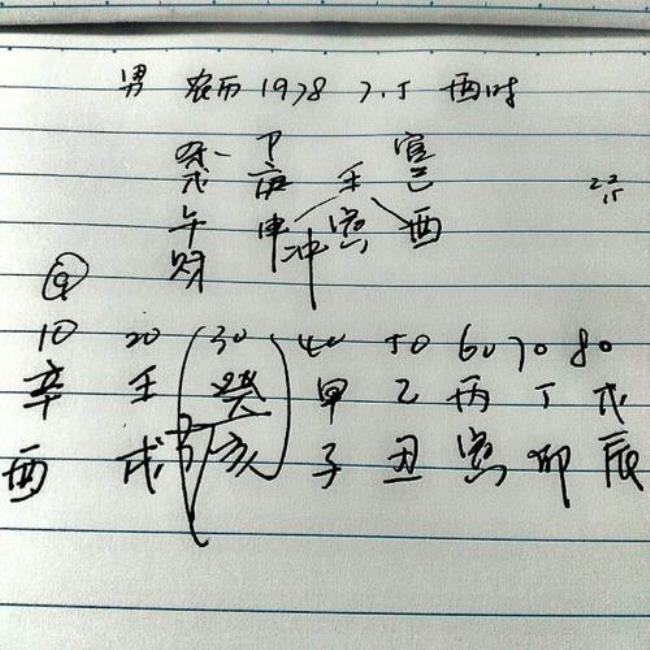 男 农历1978 7.5 酉时
杀 P 官
戊 庚 壬 己
午 申冲寅 酉
财
9
10 20 30 40 50 60 70 80
辛 壬 癸 甲 乙 丙 丁 戊
酉 戌 亥 子 丑 寅 卯 辰